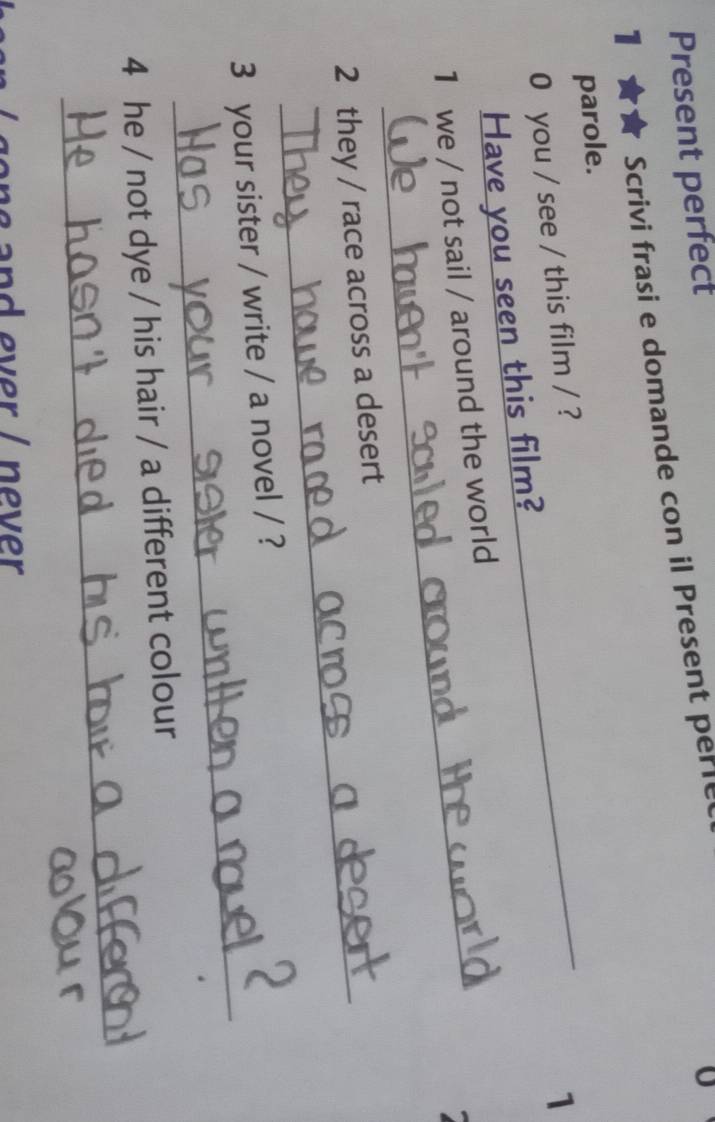 Present perfect
1 ★★ Scrivi frasi e domande con il Present
parole.
0 you / see / this film / ?
Have you seen this film?
1 we / not sail / around the world
We haven't sailed around the world
2 they / race across a desert
They have raced across a desert
3 your sister / write / a novel / ?
Has your sister written a novel?
4 he / not dye / his hair / a different colour
He hasn't died his hair a different
colour
gone and ever / never
0
1